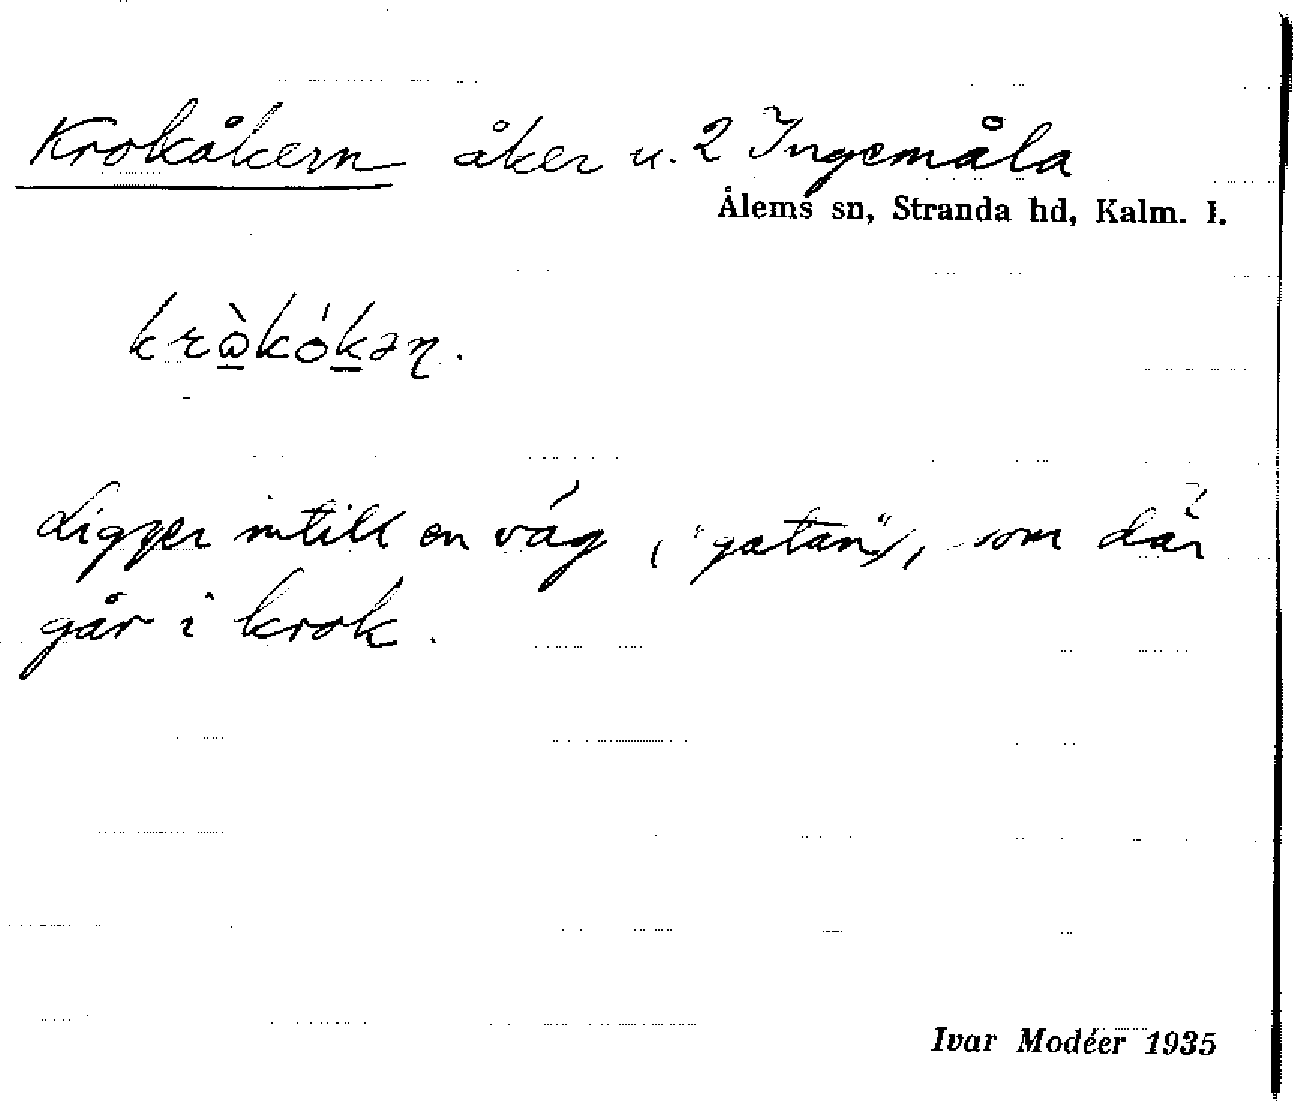 Krokåkern åker u. 2 Ingemåla
Ålems sn, Stranda hd, Kalm. l.
krὼ̱kóḵəɳ.
Ligger intill en väg, ("gatan"), som där
går i krok.
Ivar Modéer 1935